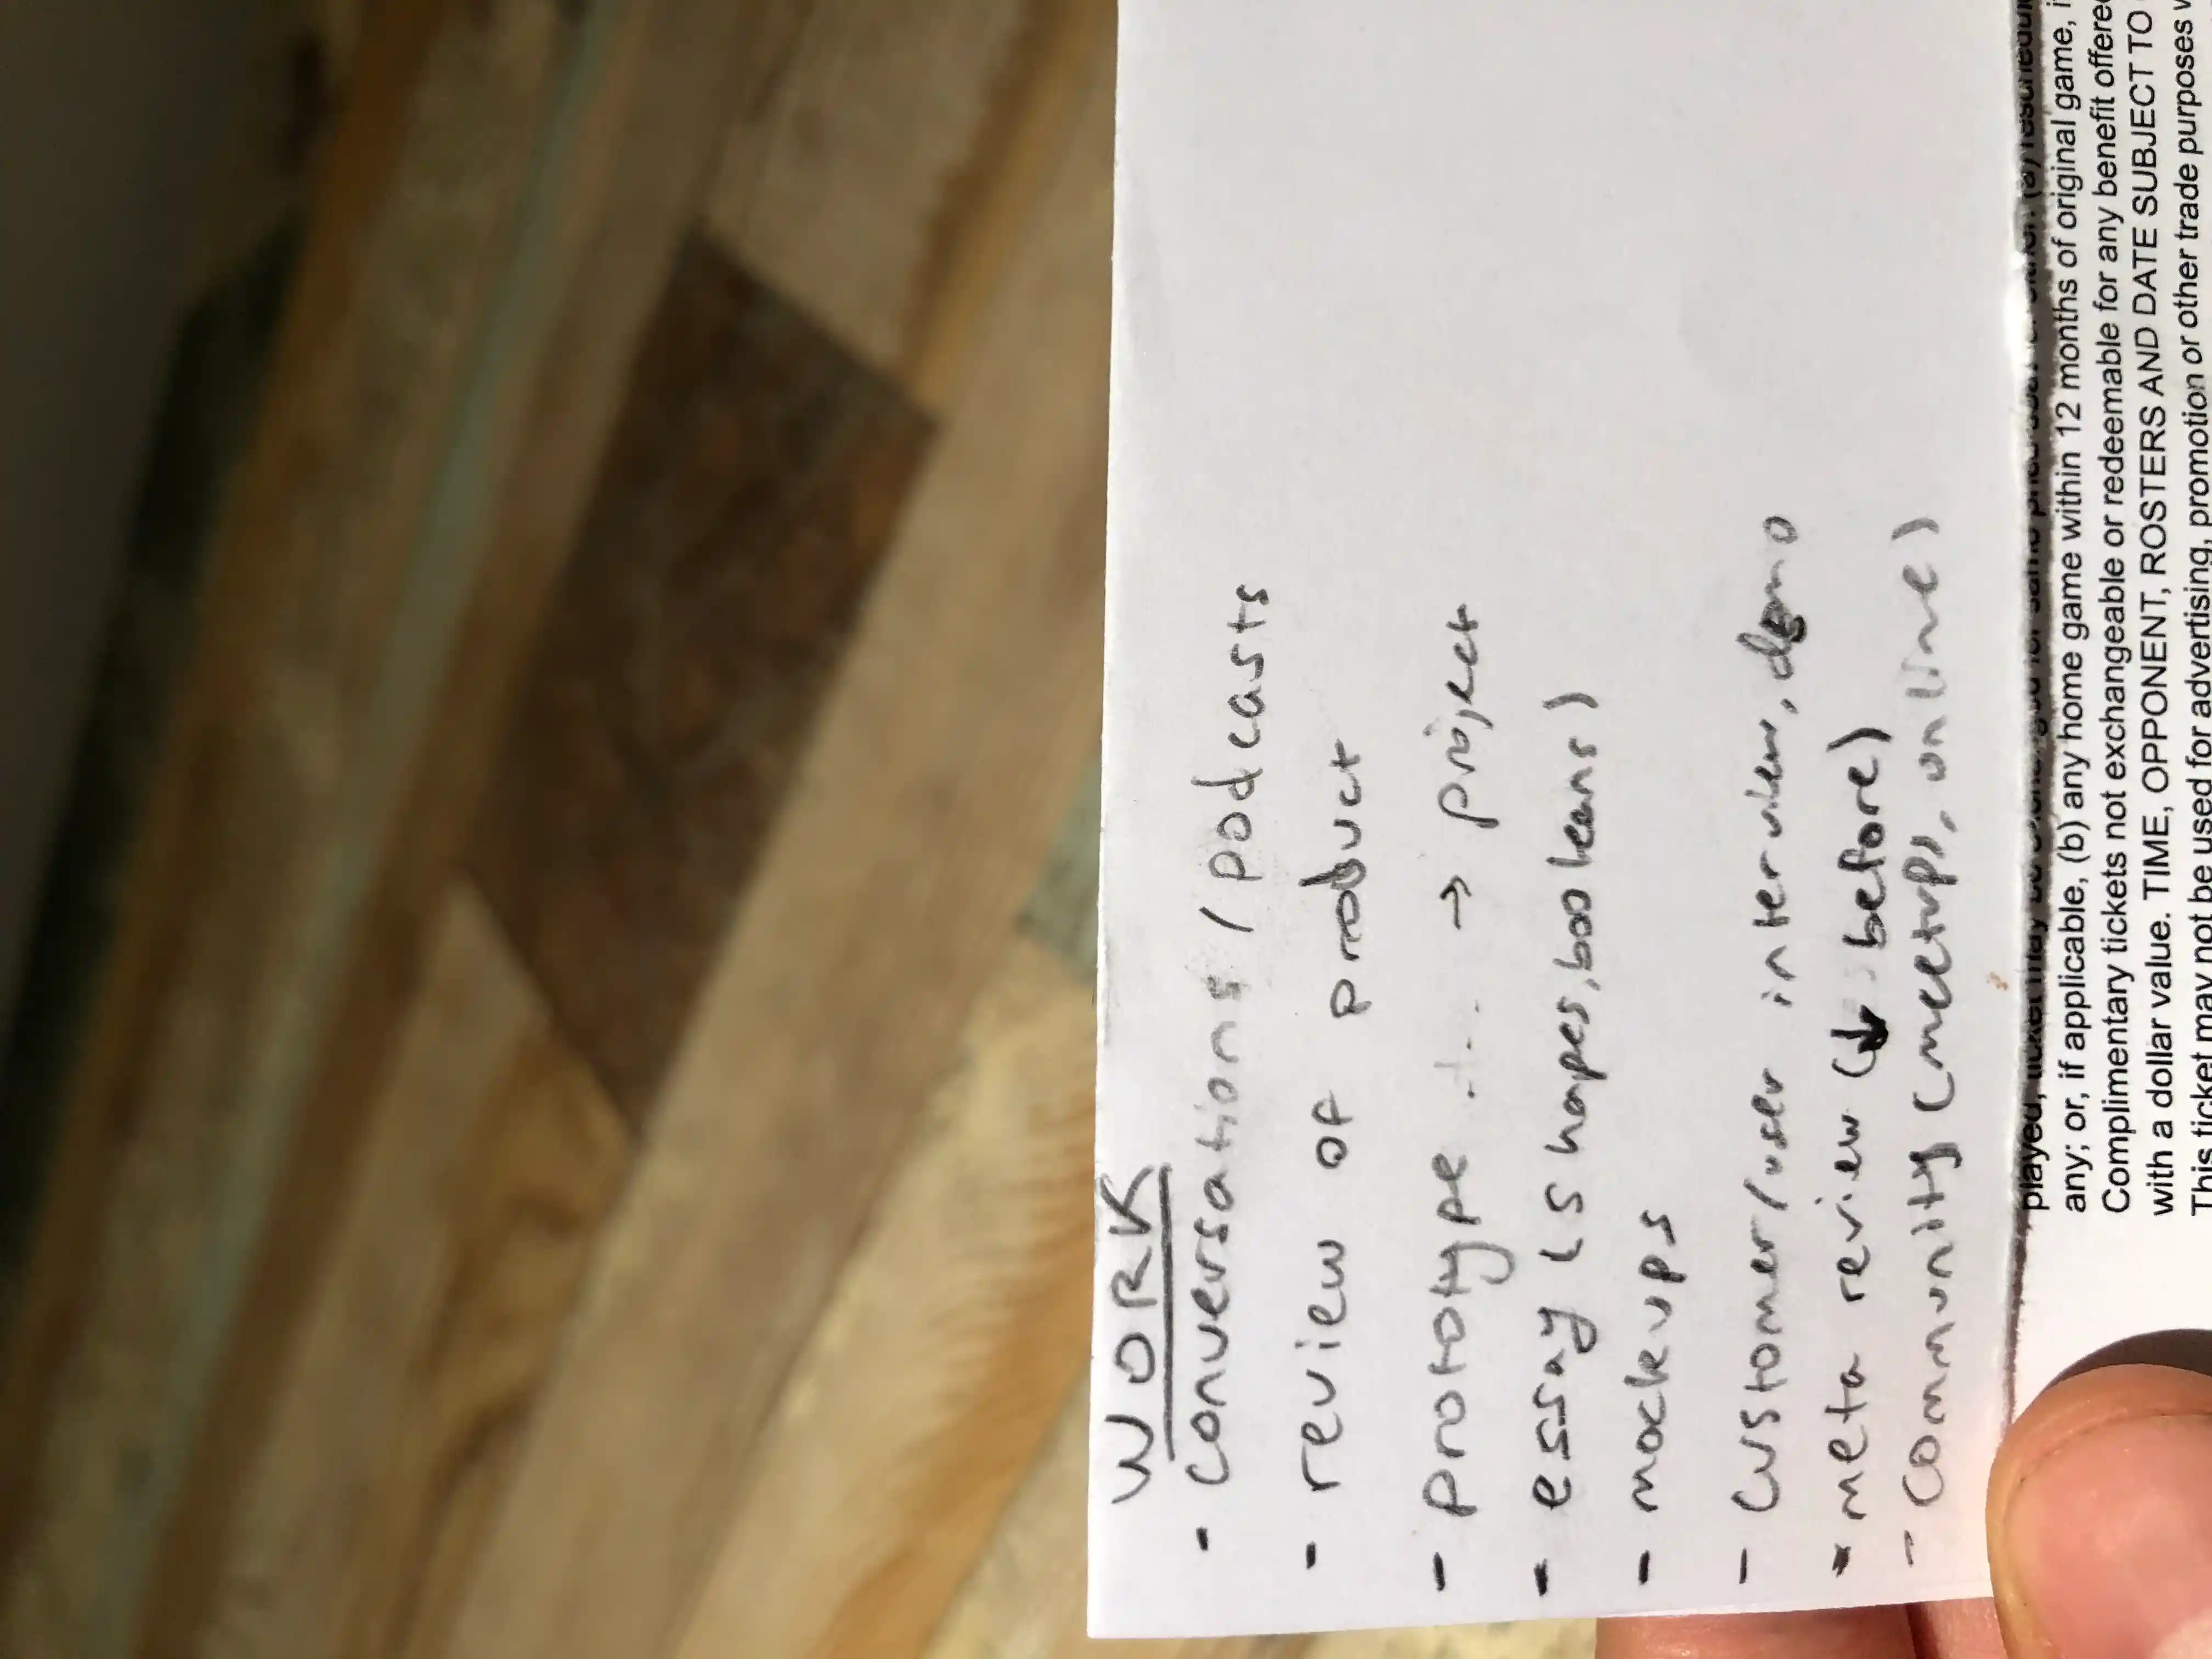 WORK
- conversations / podcasts
- review of product
- prototype → project
- essay (shapes, booleans)
- mockups
- customer/user interview, demo
* meta review (↓ before)
- community (meetups, online)
played, ticket may be
any; or, if applicable, (b) any home game within 12 months of original game, i
Complimentary tickets not exchangeable or redeemable for any benefit offered
with a dollar value. TIME, OPPONENT, ROSTERS AND DATE SUBJECT TO
This ticket may not be used for advertising, promotion or other trade purposes w